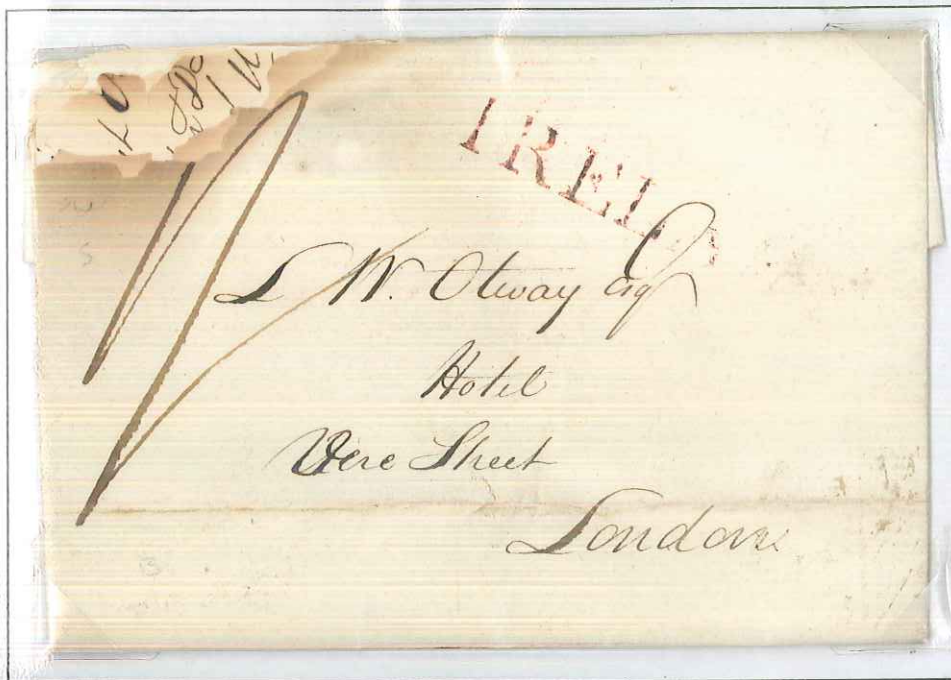 IRELA
L W. Otway Esq
Hotel
Vere Street
London